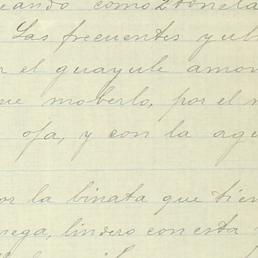 como 2 toneladas
Las frecuentes y
el guayule amon
moberlo, por el
oja, y con la agu
or la binata que tien
lindero con esta